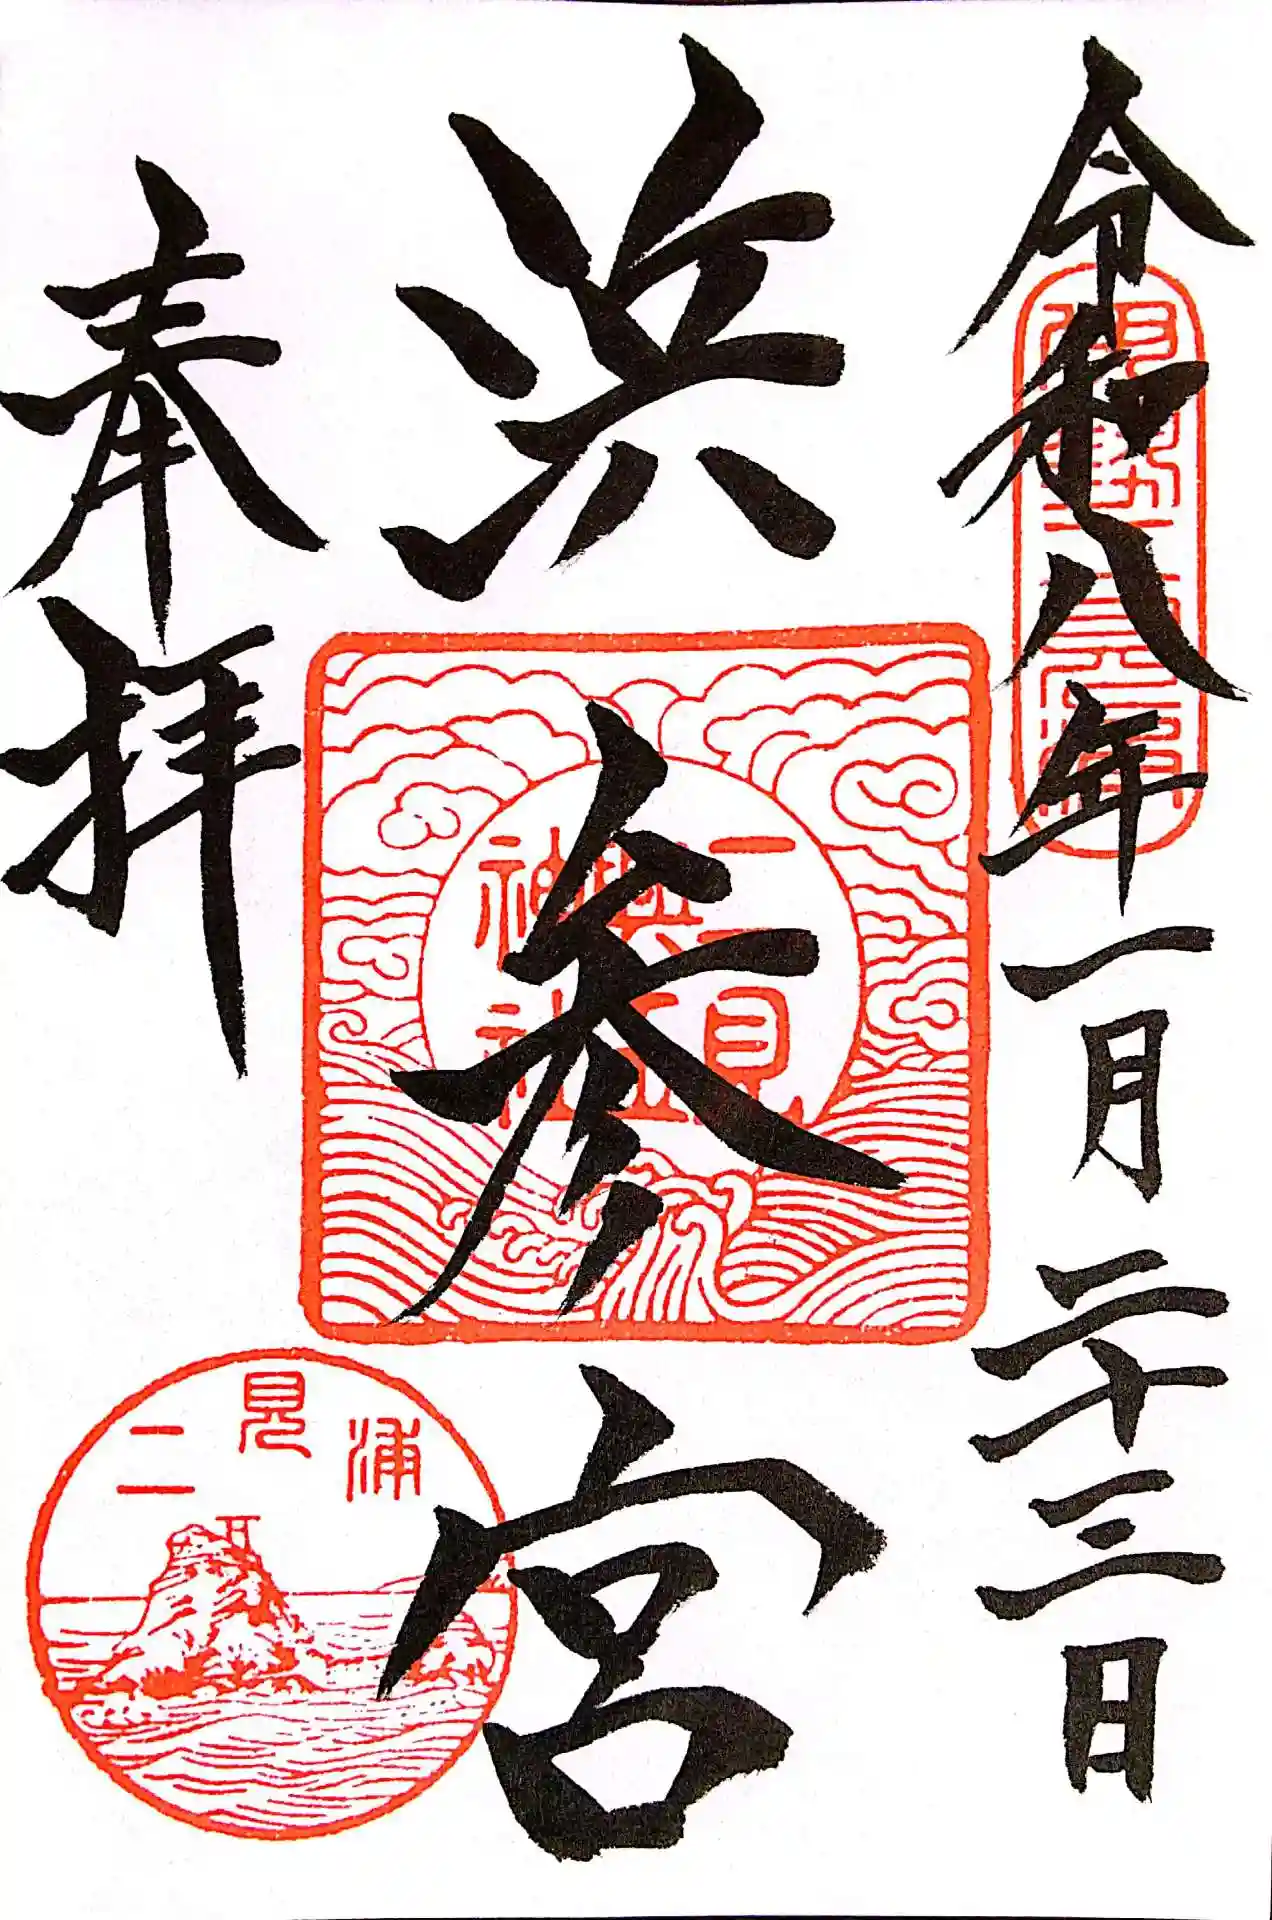 令和八年一月二十三日
浜参宮
奉拝
二見興玉神社
二見浦